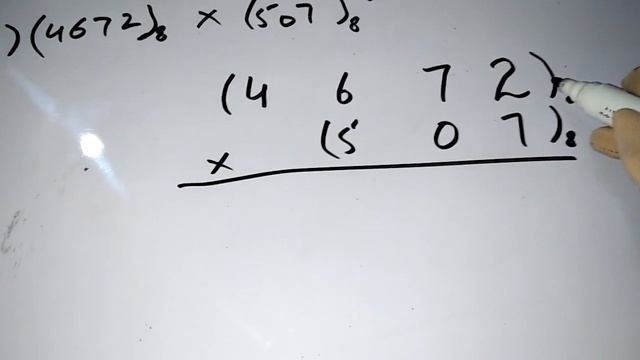 )(4672)8 × (507)8
(4 6 7 2)
× (5 0 7)8